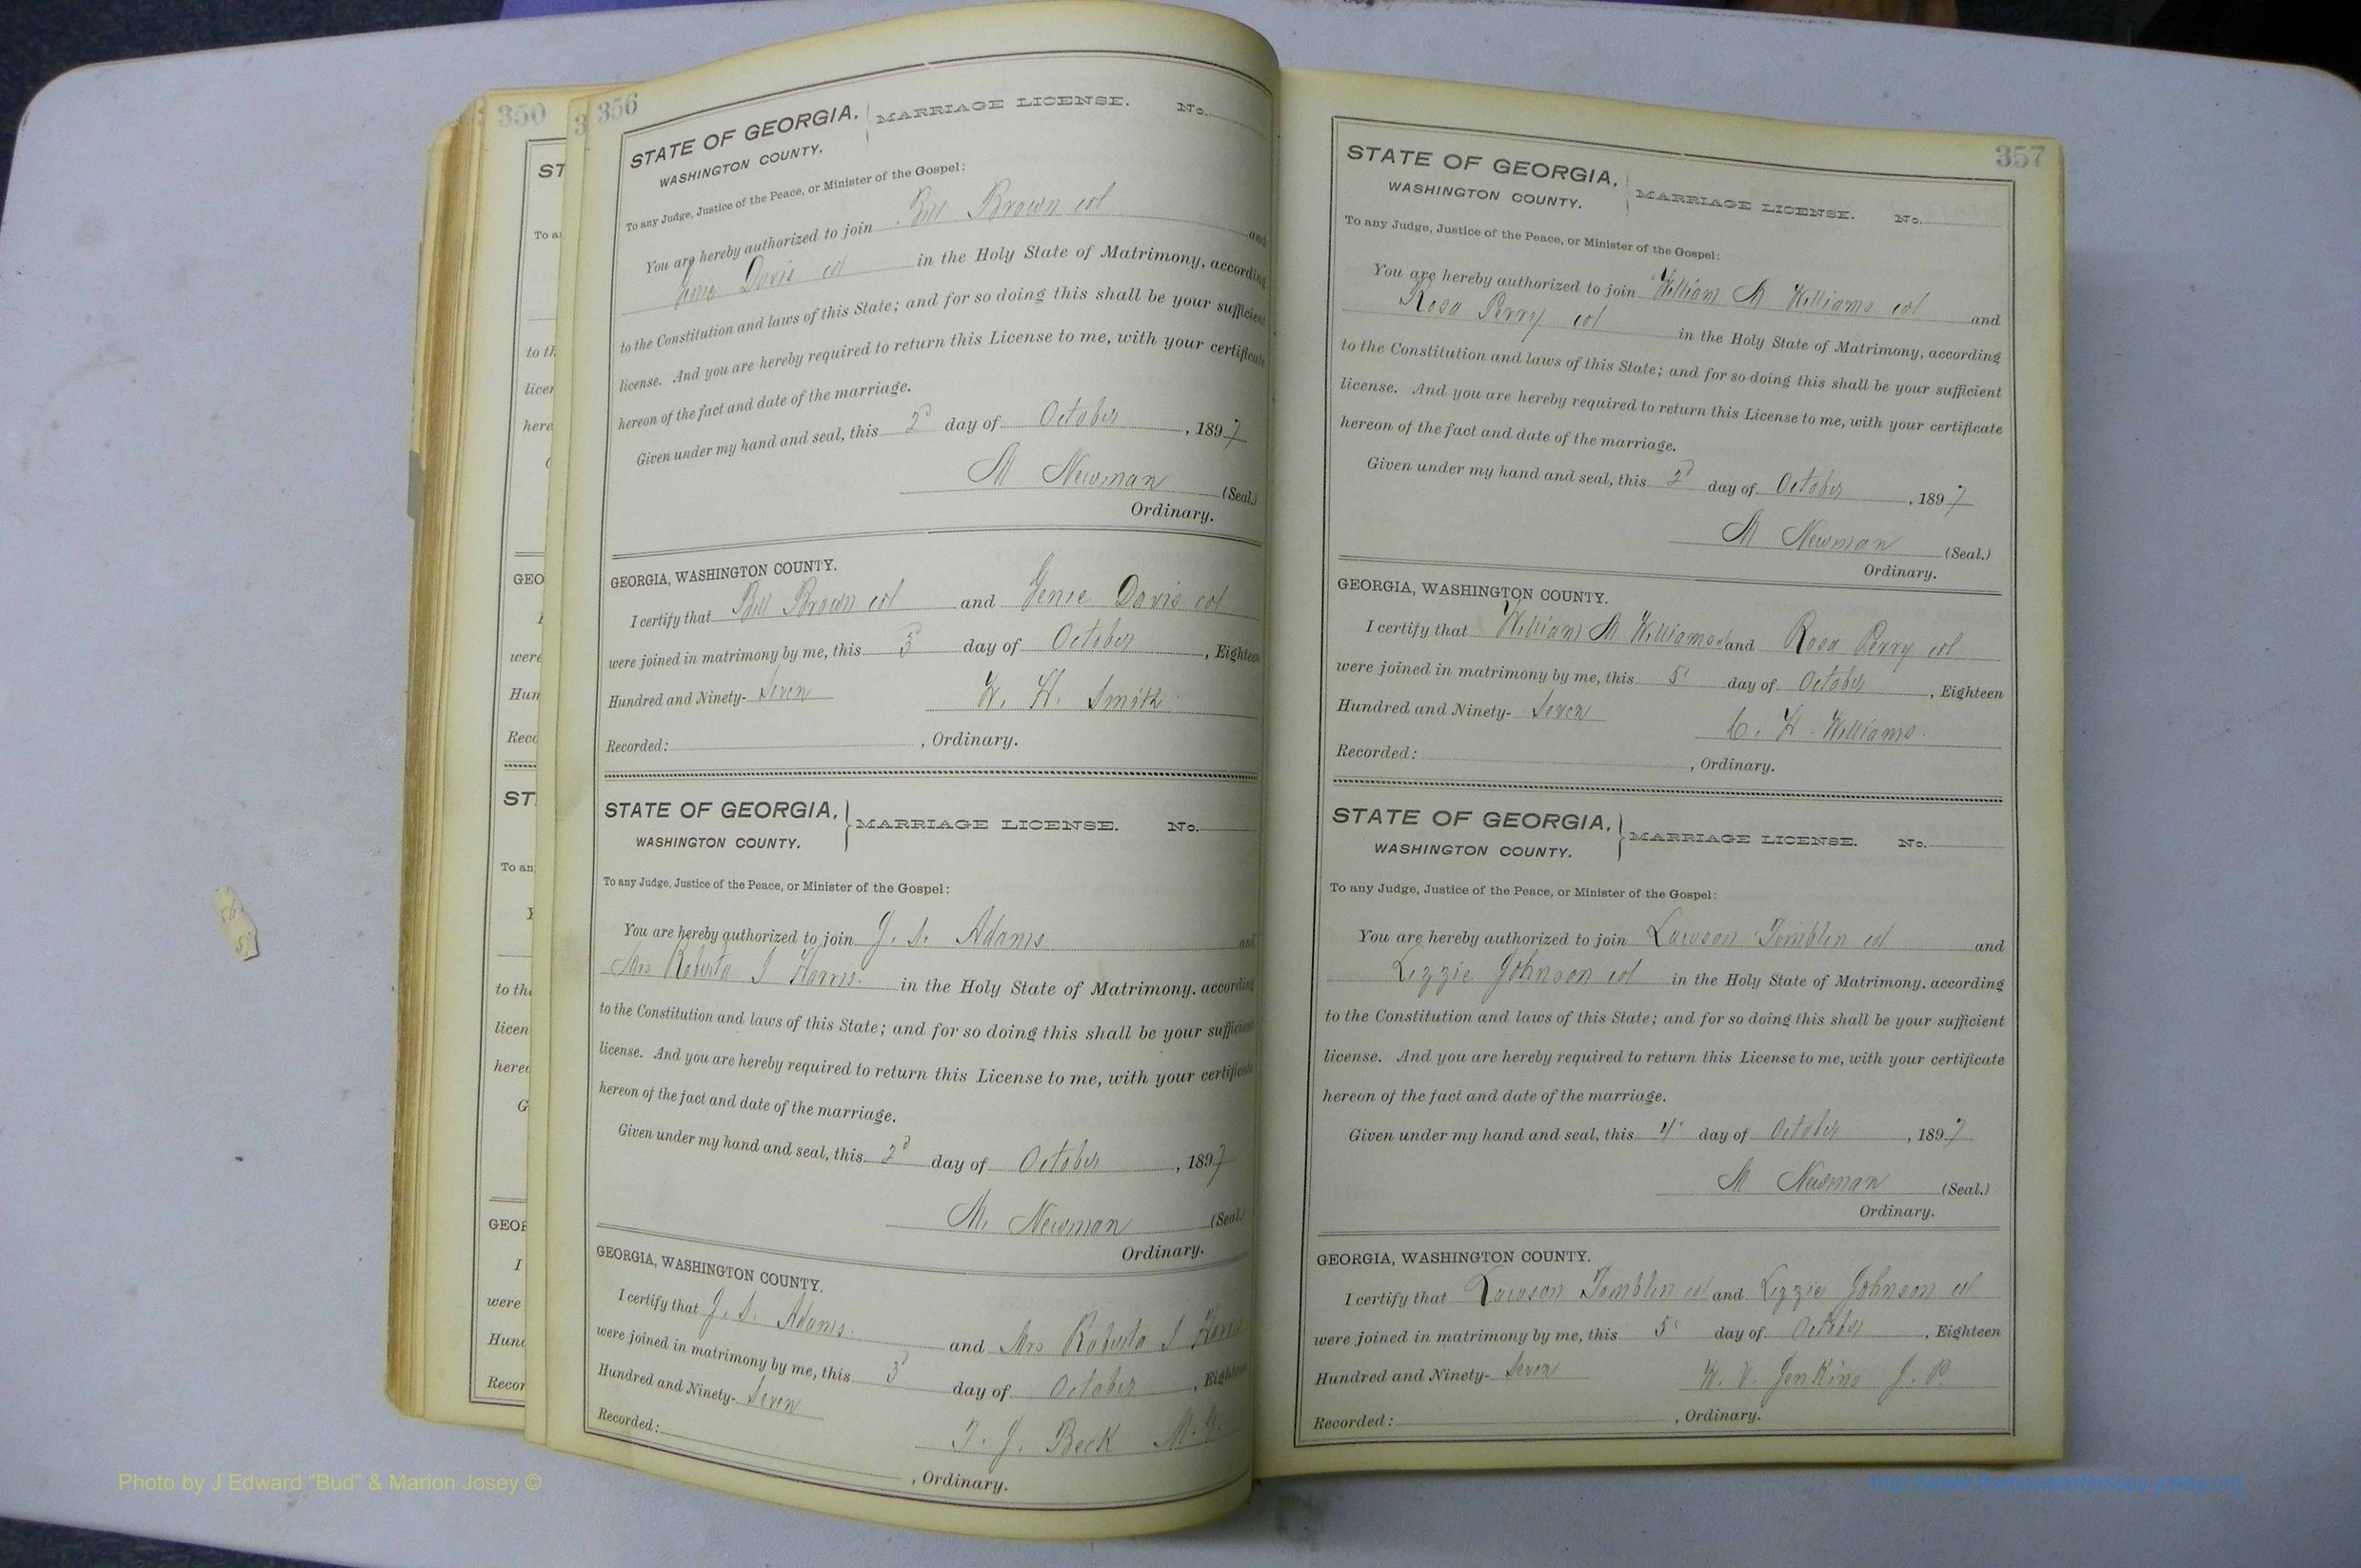 350
356
STATE OF GEORGIA, MARRIAGE LICENSE. No.
WASHINGTON COUNTY.
To any Judge, Justice of the Peace, or Minister of the Gospel:
You are hereby authorized to join Bill Brown col and
Genie Davis col in the Holy State of Matrimony, according
to the Constitution and laws of this State; and for so doing this shall be your sufficient
license. And you are hereby required to return this License to me, with your certificate
hereon of the fact and date of the marriage.
Given under my hand and seal, this 2d day of October, 1897
M Newman (Seal.)
Ordinary.
GEORGIA, WASHINGTON COUNTY.
I certify that Bill Brown col and Genie Davis col
were joined in matrimony by me, this 3 day of October, Eighteen
Hundred and Ninety- Seven W. H. Smith
Recorded: , Ordinary.
STATE OF GEORGIA, MARRIAGE LICENSE. No.
WASHINGTON COUNTY.
To any Judge, Justice of the Peace, or Minister of the Gospel:
You are hereby authorized to join J. S. Adams and
Mrs Roberta Harris in the Holy State of Matrimony, according
to the Constitution and laws of this State; and for so doing this shall be your sufficient
license. And you are hereby required to return this License to me, with your certificate
hereon of the fact and date of the marriage.
Given under my hand and seal, this 2d day of October, 1897
M. Newman (Seal.)
Ordinary.
GEORGIA, WASHINGTON COUNTY.
I certify that J. S. Adams. and Mrs Roberta Harris
were joined in matrimony by me, this 3d day of October, Eighteen
Hundred and Ninety- Seven
T. J. Beck M.G.
Recorded: , Ordinary.
357
STATE OF GEORGIA, MARRIAGE LICENSE. No.
WASHINGTON COUNTY.
To any Judge, Justice of the Peace, or Minister of the Gospel:
You are hereby authorized to join William M Williams col and
Rosa Perry col in the Holy State of Matrimony, according
to the Constitution and laws of this State; and for so doing this shall be your sufficient
license. And you are hereby required to return this License to me, with your certificate
hereon of the fact and date of the marriage.
Given under my hand and seal, this 2d day of October, 1897
M Newman (Seal.)
Ordinary.
GEORGIA, WASHINGTON COUNTY.
I certify that William M Williams col and Rosa Perry col
were joined in matrimony by me, this 5 day of October, Eighteen
Hundred and Ninety- Seven C. H. Williams.
Recorded: , Ordinary.
STATE OF GEORGIA, MARRIAGE LICENSE. No.
WASHINGTON COUNTY.
To any Judge, Justice of the Peace, or Minister of the Gospel:
You are hereby authorized to join Lawson Tomblin col and
Lizzie Johnson col in the Holy State of Matrimony, according
to the Constitution and laws of this State; and for so doing this shall be your sufficient
license. And you are hereby required to return this License to me, with your certificate
hereon of the fact and date of the marriage.
Given under my hand and seal, this 4 day of October, 1897
M Newman (Seal.)
Ordinary.
GEORGIA, WASHINGTON COUNTY.
I certify that Lawson Tomblin col and Lizzie Johnson col
were joined in matrimony by me, this 5 day of October, Eighteen
Hundred and Ninety- Seven W. V. Jenkins J. P.
Recorded: , Ordinary.
Photo by J Edward "Bud" & Marion Josey ©